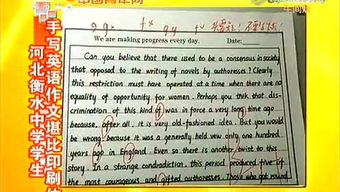 手写英语作文堪比印刷体
河北衡水中学学生
We are making progress every day. Date:
Can you believe that there used to be a consensus in society
that opposed to the writing of novels by authoresses? Clearly
this restriction must have operated at a time when there are no
equality of opportunity for women. Perhaps you think that dis-
crimination of this kind of was in force a very long time ago
because, after all, it is very old-fashioned idea. But you would
be wrong because it was a generally held view only one hundred
years ago in England. Even so there is another twist to this
story. In a strange condradiction, this period produced five of
the most courageous and gifted authoresses. Those who got round